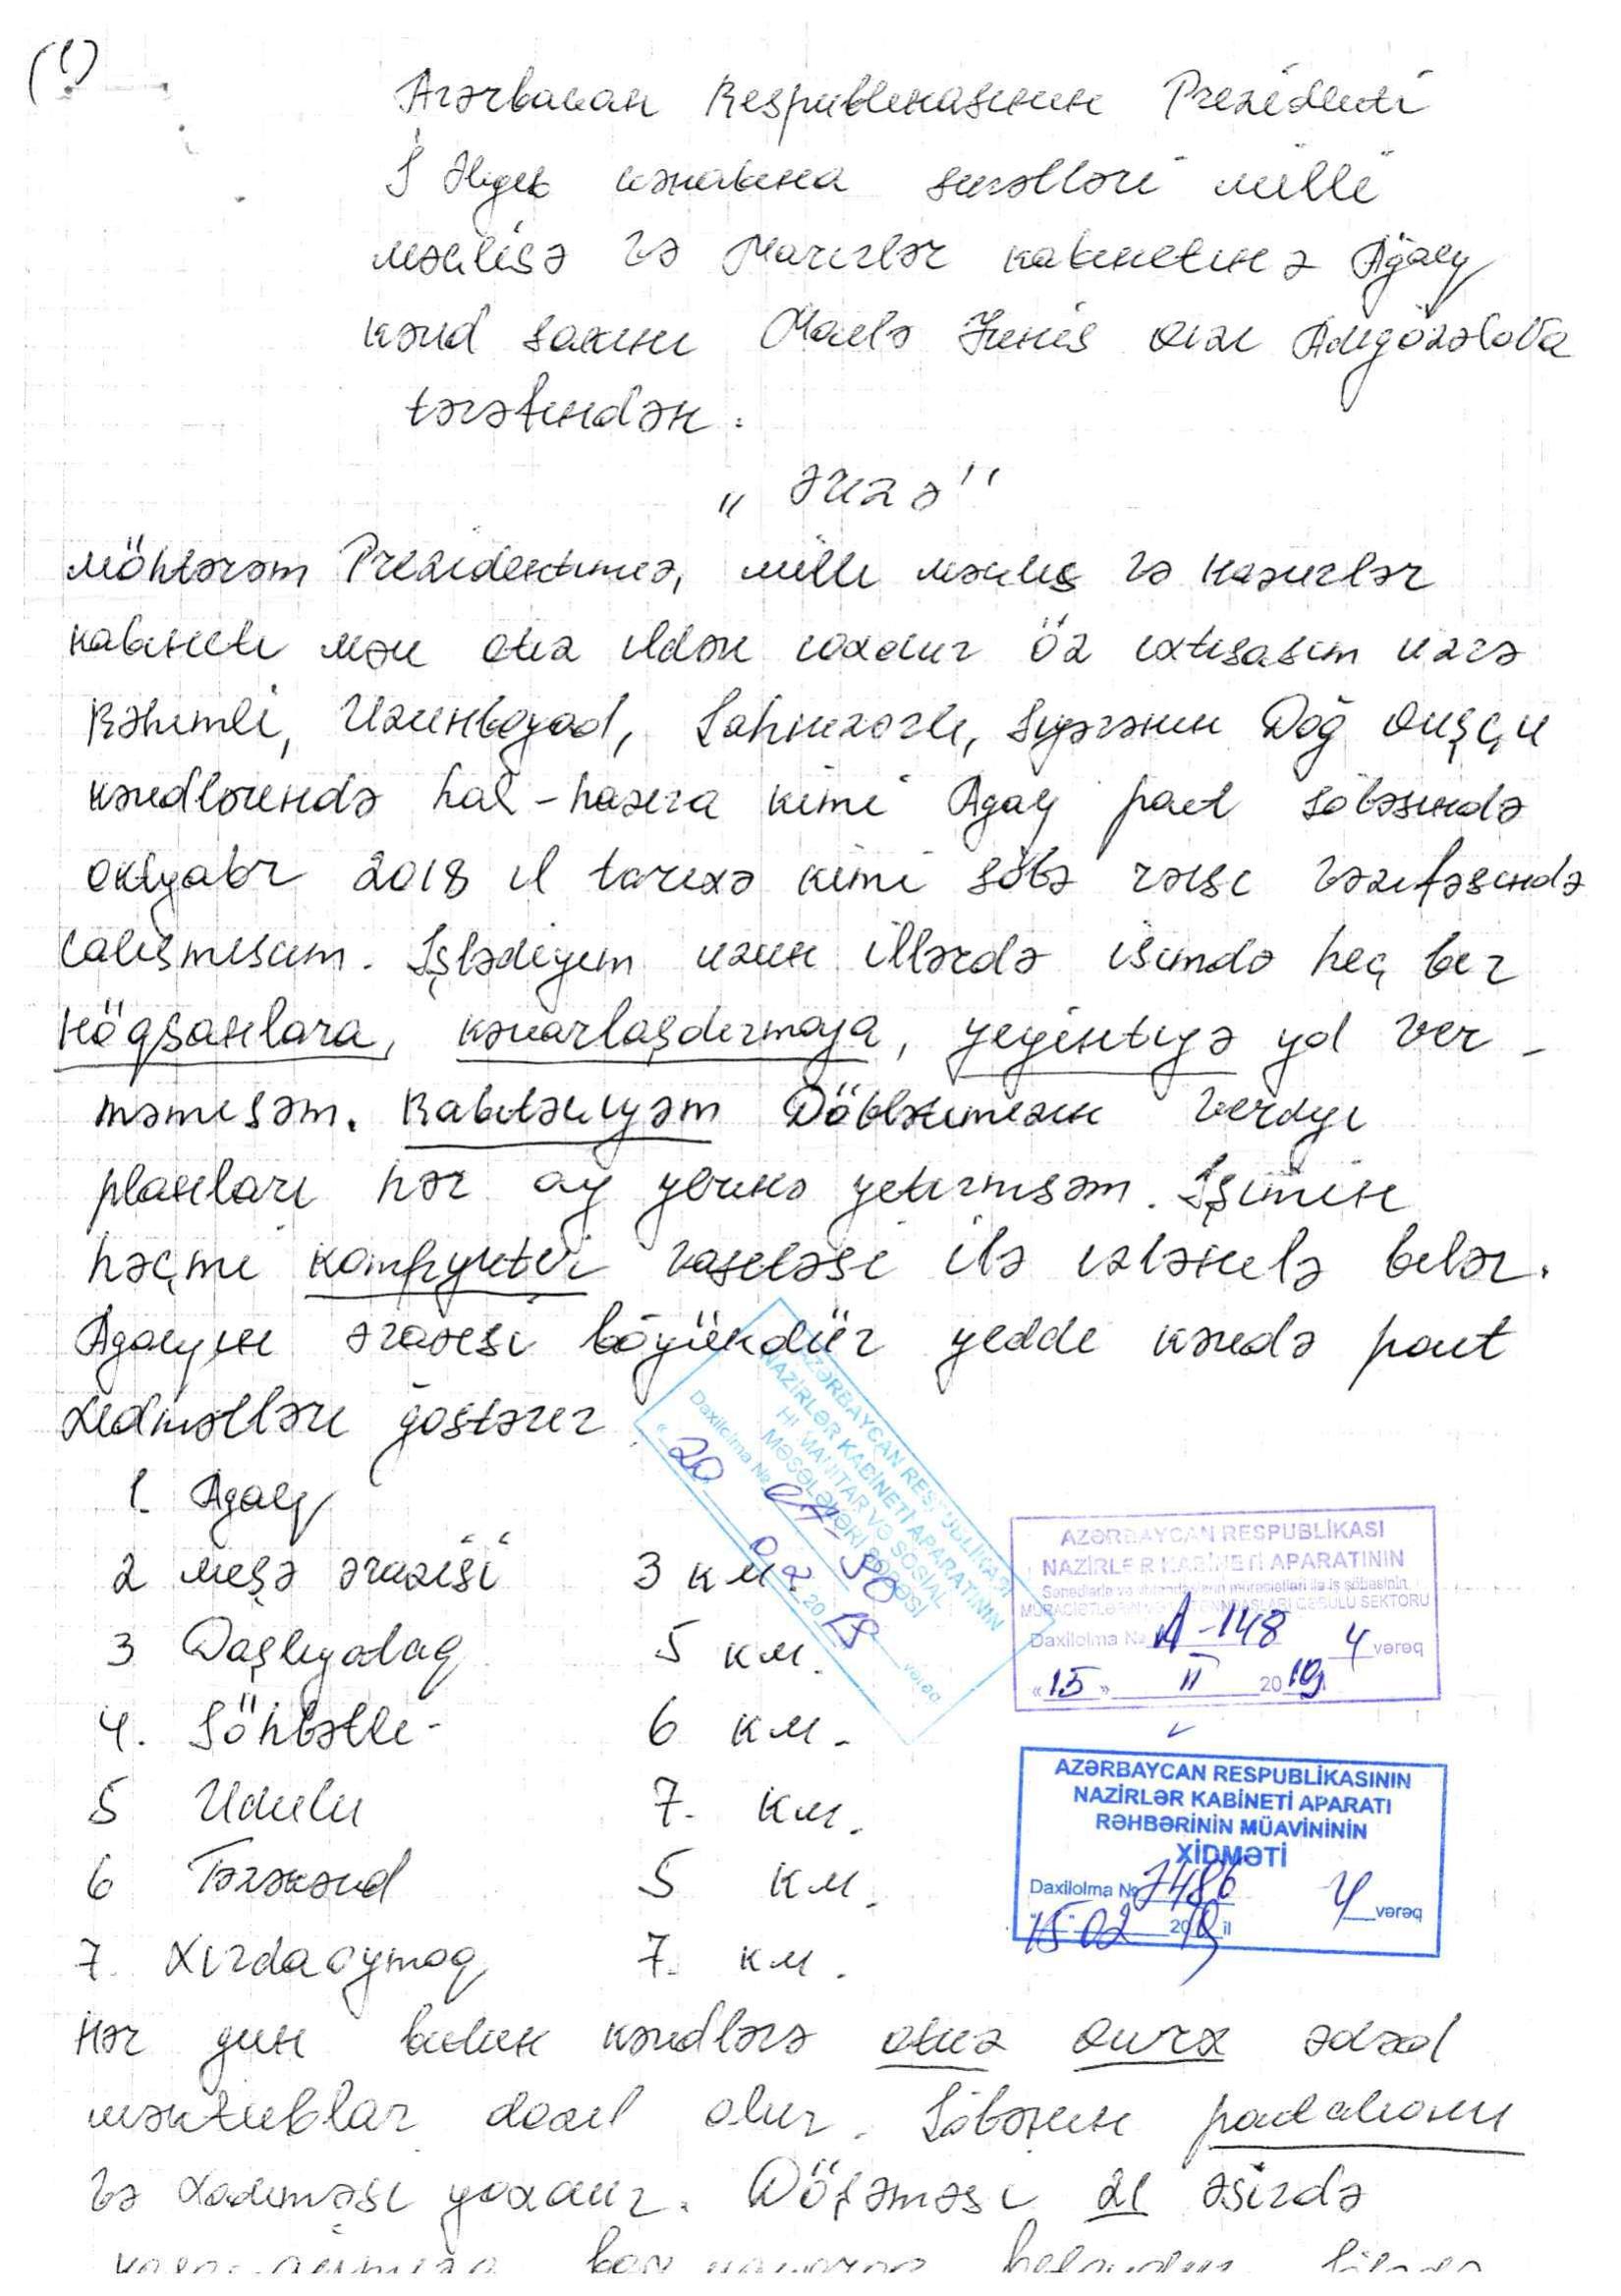 (1)
Azərbaycan Respublikasının Prezidenti
İ Əliyev cənabına surətləri milli
məclisə və Nazirlər kabinetinə Ağalıq
kənd sakini Yunis qızı Adıgözəlova
tərəfindən.
„ ərizə"
Möhtərəm Prezidentimiz, milli məclis və nazirlər
kabineti mən otuz ildən çoxdur öz ixtisasım üzrə
Rəhimli, Uzunboyad, Şahnəzərli, Dağ Quşçu
kəndlərində hal-hazıra kimi Agalıq poçt şöbəsində
oktyabr 2018 il tarixə kimi şöbə rəisi vəzifəsində
calışmışam. İşlədiyim uzun illərdə işimdə heç bir
nöqsanlara, kənarlaşdırmaya, yeyintiyə yol ver-
məmişəm. Rabitəçiyəm Dövlətimizin verdiyi
planları hər ay yerinə yetirmişəm. İşimin
həçmi kompyuteri vasitəsi ilə izlənilə bilər.
Agalıqın ərazisi böyükdür yeddi kəndə poçt
xidmətləri göstərir
1. Agalıq
2 meşə ərazisi 3 км.
3 Daşlıyolaq 5 км.
4. Söhbətli - 6 км.
5 Udulu 7. км.
6 Tərəkənd 5 км.
7. Xırdaoymaq 7. км.
Hər gün bütün kəndlərə otuz qırx ədəd
məktublar daxil olur. Şöbənin poçtalyonu
və xadiməsi yoxdur. Döşəməsi 21 əsirdə
AZƏRBAYCAN RESPUBLİKASI
NAZİRLƏR KABİNETİ APARATININ
HUMANİTAR VƏ SOSİAL
MƏSƏLƏLƏRİ ŞÖBƏSİ
Daxilolma №
« 20 02 2019
vərəq
AZƏRBAYCAN RESPUBLİKASI
NAZİRLƏR KABİNETİ APARATININ
Daxilolma № A-148 4 vərəq
« 15 » II 2019
AZƏRBAYCAN RESPUBLİKASININ
NAZİRLƏR KABİNETİ APARATI
RƏHBƏRİNİN MÜAVİNİNİN
XİDMƏTİ
Daxilolma № 7486 4 vərəq
"15" 02 2019 il